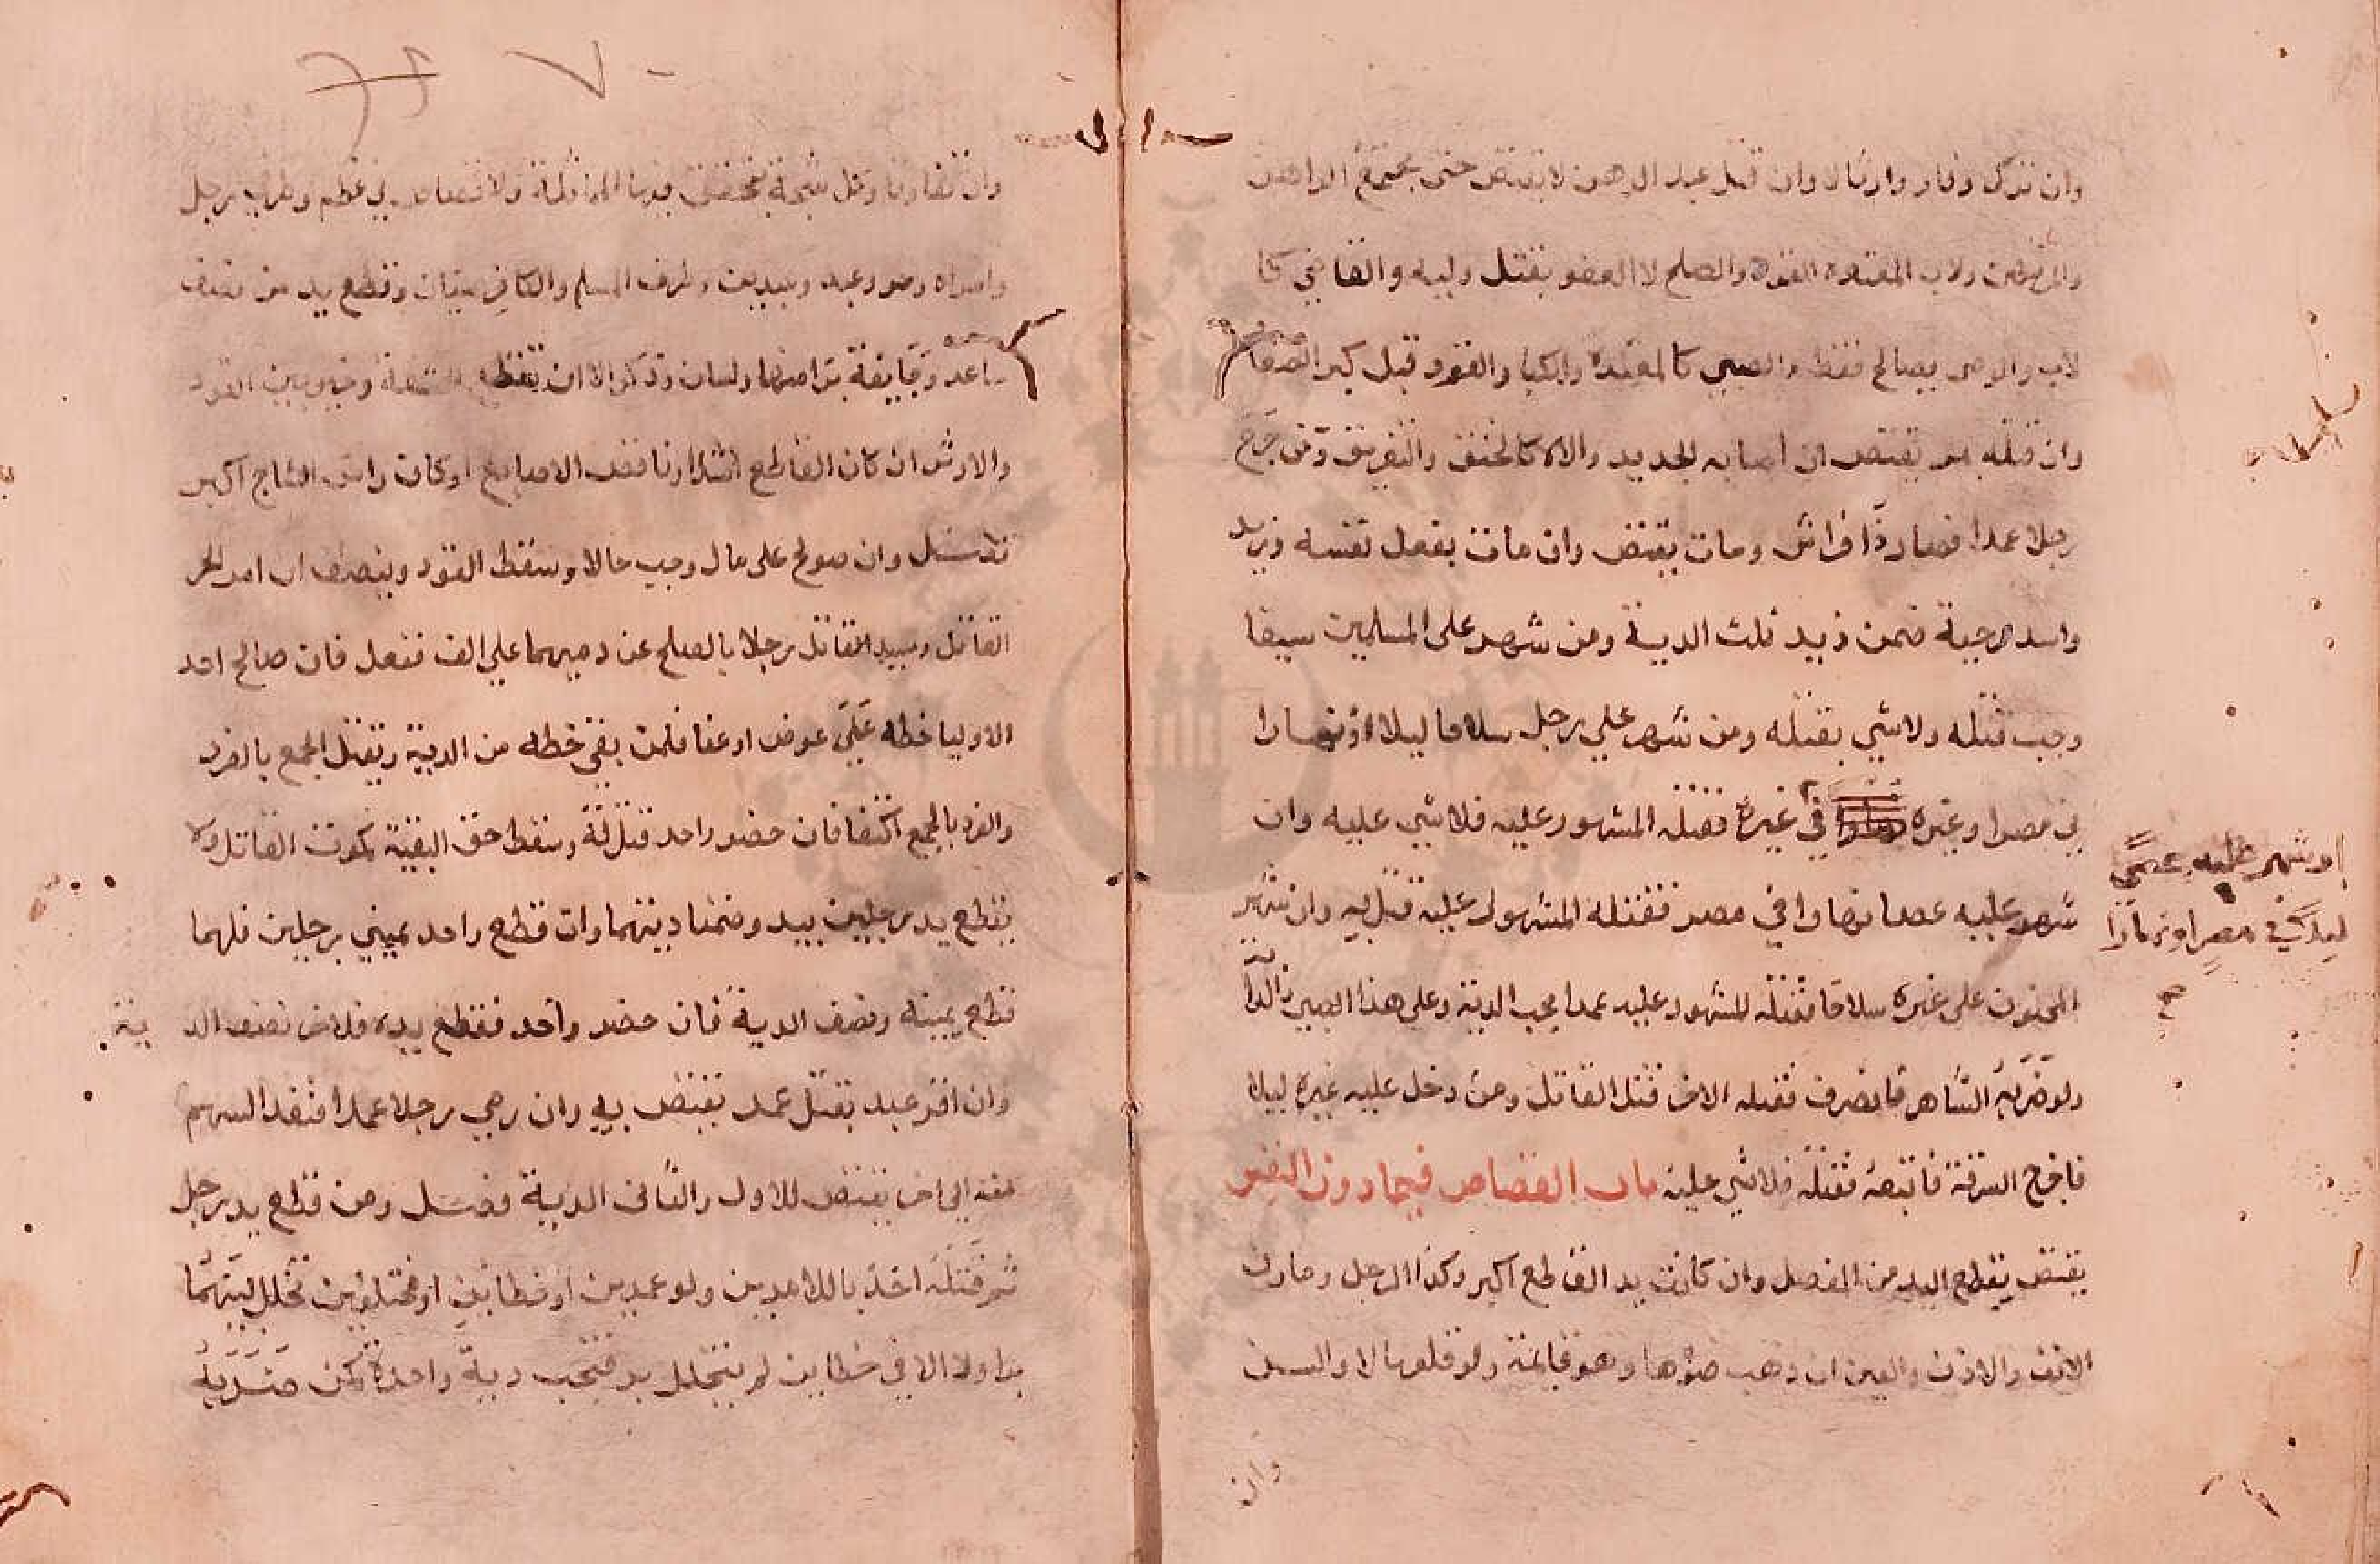 وان ترك وفاء ووارثا لا وان قتل عبد الرهن لا يقتص حتى يجتمع الراهن
والمرتهن ولاب المعتوه القود والصلح لا العفو بقتل وليه والقاضي كا
لاب والوصي يصالح فقط والصبي كالمعتوه والكبار القود قبل كبر الصغار
وان قتله بمر يقتص ان اصابه الحديد والا لا كالخنق والتغريق ومن جرح
رجلا عمدا فصار ذا فراش ومات يقتص وان مات بفعل نفسه وزيد
واسد وحية ضمن زيد ثلث الدية ومن شهر على المسلمين سيفا
وجب قتله ولا شي بقتله ومن شهر علي رجل سلاحا ليلا او نهارا
في مصر او غيره في غيره فقتله المشهور عليه فلا شي عليه وان
شهر عليه عصا نهارا في مصر فقتله المشهور عليه قتل به وان شهر
المجنون على غيره سلاحا فقتله المشهور عليه عمدا يجب الدية وعلى هذا الصبي والدابة
ولو ضربه الشاهر فانصرف فقتله الاخر قتل القاتل ومن دخل عليه غيره ليلا
فاخرج السرقة فاتبعه فقتله فلا شي عليه باب القصاص فيما دون النفس
يقتص بقطع اليد من المفصل وان كانت يد القاطع اكبر وكذا الرجل ومارن
الانف والاذن والعين ان ذهب ضوها وهو قائمة ولو قلعها لا والسن
وان
او شهر عليه عصي
ليلا في مصر او نهارا
صح
وان تفاوتا وكل شجة تتحقق فيها المماثلة ولا قصاص في عظم وطرف رجل
وامراة وحر وعبد وعبدين وطرف المسلم والكافر سيان وقطع يد من نصف
ساعد وجايفة برا منها ولسان وذكر الا ان يقطع الحشفة وخير بين القود
والارش ان كان القاطع اشل او ناقص الاصابع او كان راس الشاج اكبر
فصل وان صولح على مال وجب حالا وسقط القود وينصف ان امر الحر
القاتل وسيد القاتل رجلا بالصلح عن دمهما علي الف ففعل فان صالح احد
الاوليا حظه علي عوض او عفا فلمن بقي حظه من الدية ويقتل الجمع بالفرد
والفرد بالجمع اكتفا فان حضر واحد قتل له وسقط حق البقية كموت القاتل ولا
يقطع يد رجلين بيد وضمنا ديتهما وان قطع واحد يميني رجلين فلهما
قطع يمينه ونصف الدية فان حضر واحد فقطع يده فلاخر نصف الد ية
وان اقر عبد بقتل عمد يقتص به وان رمي رجلا عمدا فنفذ السهم
منه الي اخر يقتص للاول والثاني الدية فصل ومن قطع يد رجل
ثم قتله اخذ بالامرين ولو عمدين او خطائين او مختلفين تخلل بينهما
برا ولا الا في خطاين لم يتخلل بر فتجب دية واحدة كمن ضربه